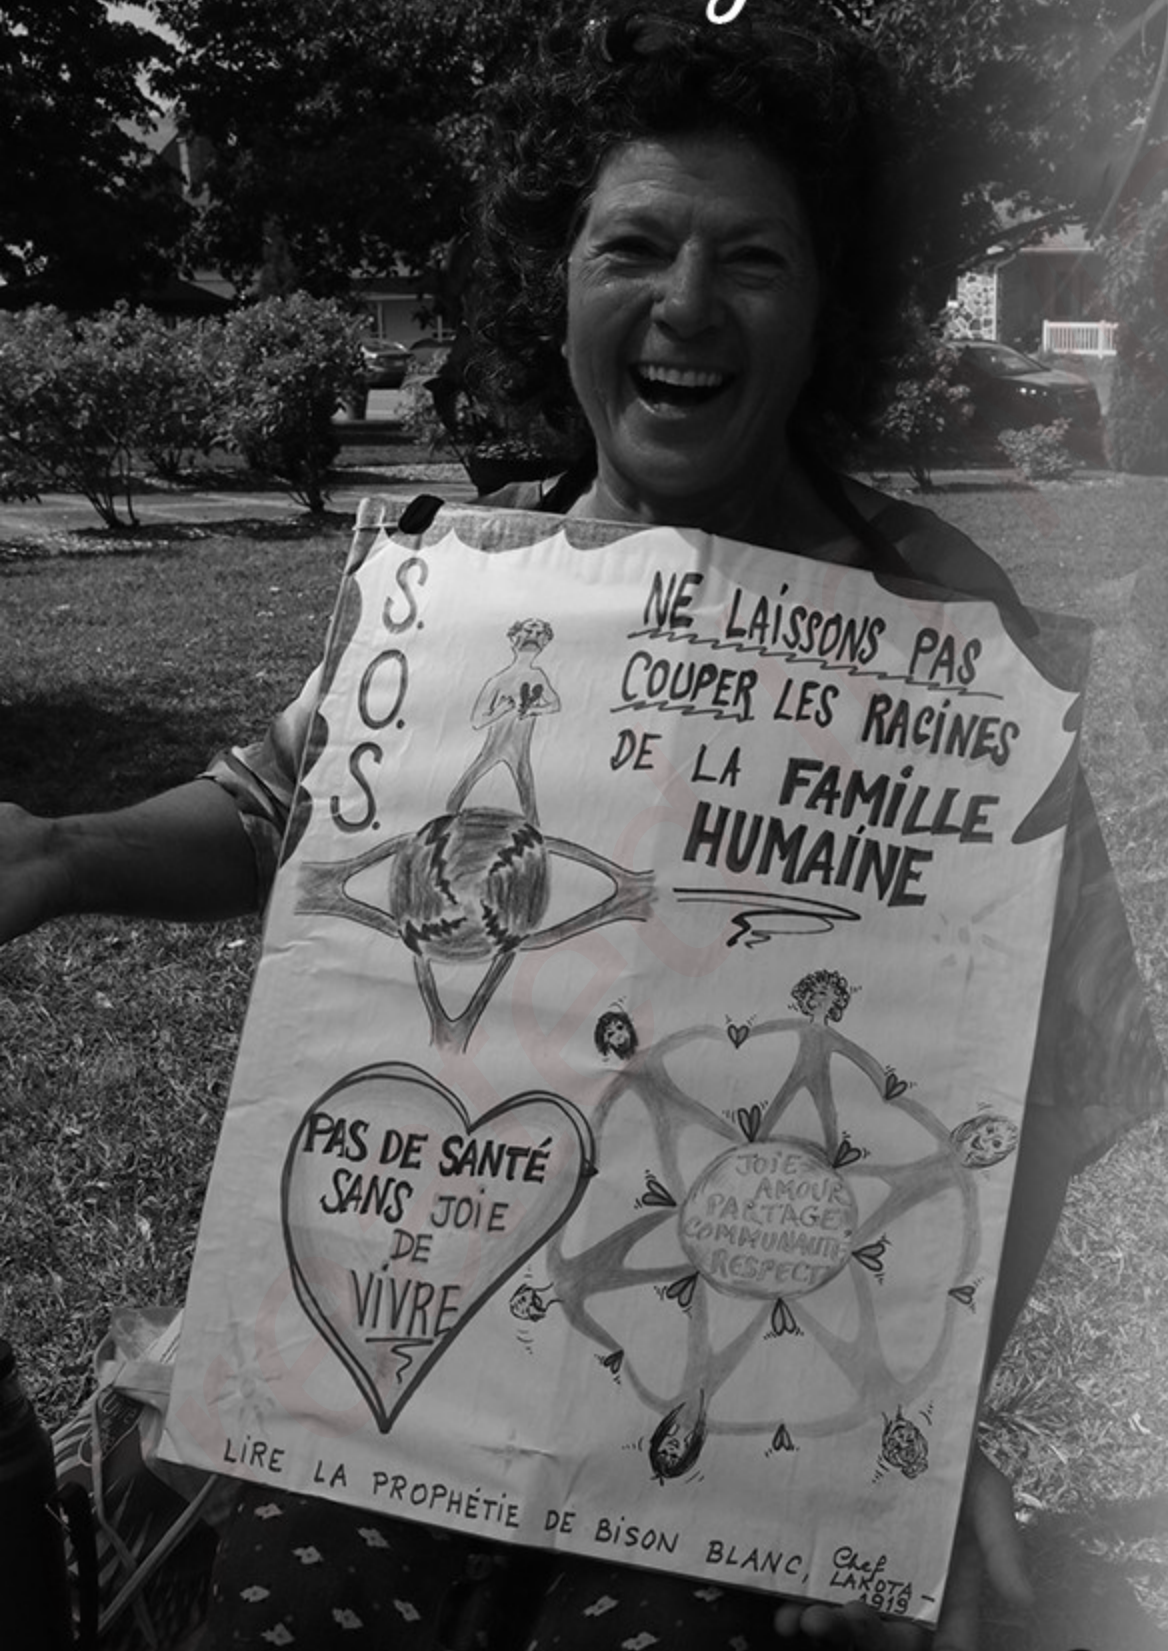 S.
O.
S.
NE LAISSONS PAS
COUPER LES RACINES
DE LA FAMILLE
HUMAINE
PAS DE SANTÉ
SANS JOIE
DE
VIVRE
JOIE
AMOUR
PARTAGE
COMMUNAUTÉ
RESPECT
LIRE LA PROPHÉTIE DE BISON BLANC,
Chef
LAKOTA -
1919